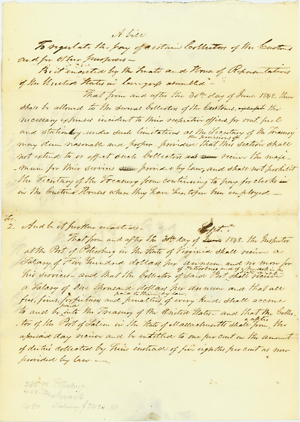 A bill
To regulate the pay of certain Collectors of the Customs
and for other purposes —
Be it enacted by the Senate and House of Representatives
of the United States in Congress assembled
That from and after the 30th day of June 1842 there
shall be allowed to the several Collectors of the Customs, except the
necessary expenses incident to their respective offices for rent fuel
and stationery under such limitations as the Secretary of the Treasury
may deem reasonable and proper provided that this section shall
not extend to or effect such Collectors as receive the maxi-
mum for their services provided by law, and shall not prohibit
the Secretary of the Treasury from continuing to pay for clerks
in the Custom Houses when they have heretofore been employed —
2. And be it further enacted
Sept
That from and after the 30th day of 1842 the Inspector
at the Port of in the State of Virginia shall receive a
Salary of Five hundred dollars per annum and no more for
his services and that the Collector of your Port shall receive
a Salary of One thousand dollars per annum and that all
fees, fines, forfeitures and penalties of every kind shall accrue
to and be into the Treasury of the United States and that the Collec-
tor of the Port of Salem in the State of Massachusetts shall from the
aforesaid day receive and be entitled to one per cent on the amount
of duties collected by him instead of five eighths per cent as now
provided by law —